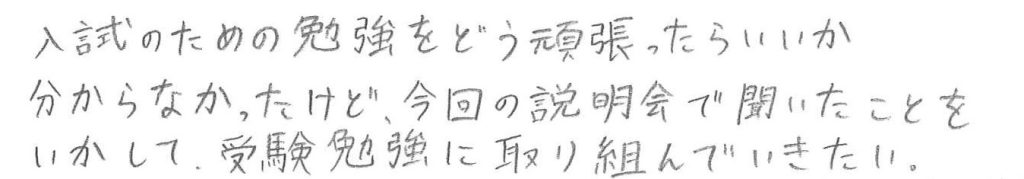 入試のための勉強をどう頑張ったらいいか
分からなかったけど、今回の説明会で聞いたことを
いかして、受験勉強に取り組んでいきたい。